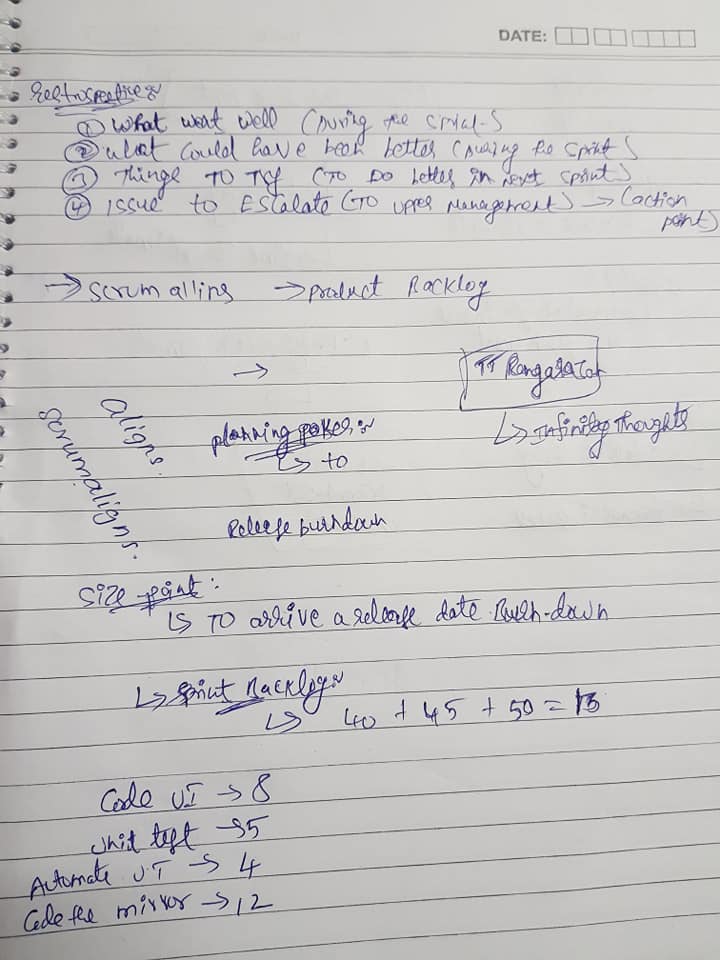 DATE:
Restrospective:
① What went well (During the sprint)
② What could have been better (During the sprint)
③ Things TO TRY (TO DO better in next sprint)
④ ISSUE to EScalate (TO upper management) → (action
point)
→ scrum alling → product Backlog
→
TT Rangarajan
↳ Infinitheo Thoughts
aligns.
scrumaligns.
planning poker:
↳ to
Release burndown
Size point:
↳ TO arrive a release date Burn-down
↳ Sprint Backlog:
↳ 40 + 45 + 50 =
Code UI → 8
Unit test → 5
Automate UT → 4
Code the mirror → 12